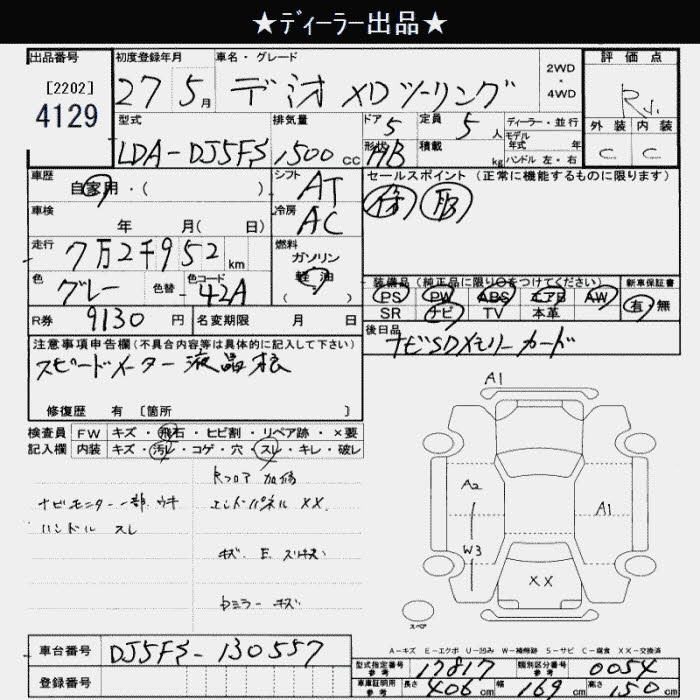 ★ディーラー出品★
出品番号 初度登録年月 車名・グレード 2WD・4WD 評価点
[2202] 4129 27 5月 デミオ XDツーリング R
型式 排気量 ドア 定員 ディーラー・並行 外装 内装
LDA-DJ5FS 1500cc 5 5人 モデル年式 年 C C
形状 HB 積載 kg ハンドル 左・右
車歴 シフト セールスポイント (正常に機能するものに限ります)
自家用・( ) AT
車検 冷房
年 月( 日) AC
走行 7万2千952km 燃料
ガソリン
色 グレー 色替 色コード 42A 軽油
( )
装備品(純正品に限り○をつけてください) 新車保証書
PS PW ABS エアB AW 有・無
SR ナビ TV 本革
R券 9130円 名変期限 月 日 後日品
ナビSDメモリーカード
注意事項申告欄(不具合内容等は具体的に記入して下さい)
スピードメーター液晶
修復歴 有 [箇所 ]
検査員 FW キズ・飛石・ヒビ割・リペア跡・×要
記入欄 内装 キズ・汚レ・コゲ・穴・スレ・キレ・破レ
Rフロア 加修
ナビモニター一部 ウキ エンドパネル XX.
ハンドル スレ
キズ. E.
Dミラー キズ
A1
A2 A1
W3
XX
スペア
A-キズ E-エクボ U-凹み W-補修跡 S-サビ C-腐食 XX-交換済
車台番号 DJ5FS-130557
型式指定番号 参考 17817 類別区分番号 参考 0054
登録番号
車庫証明用 参考 長さ 406cm 幅 169cm 高さ 150cm